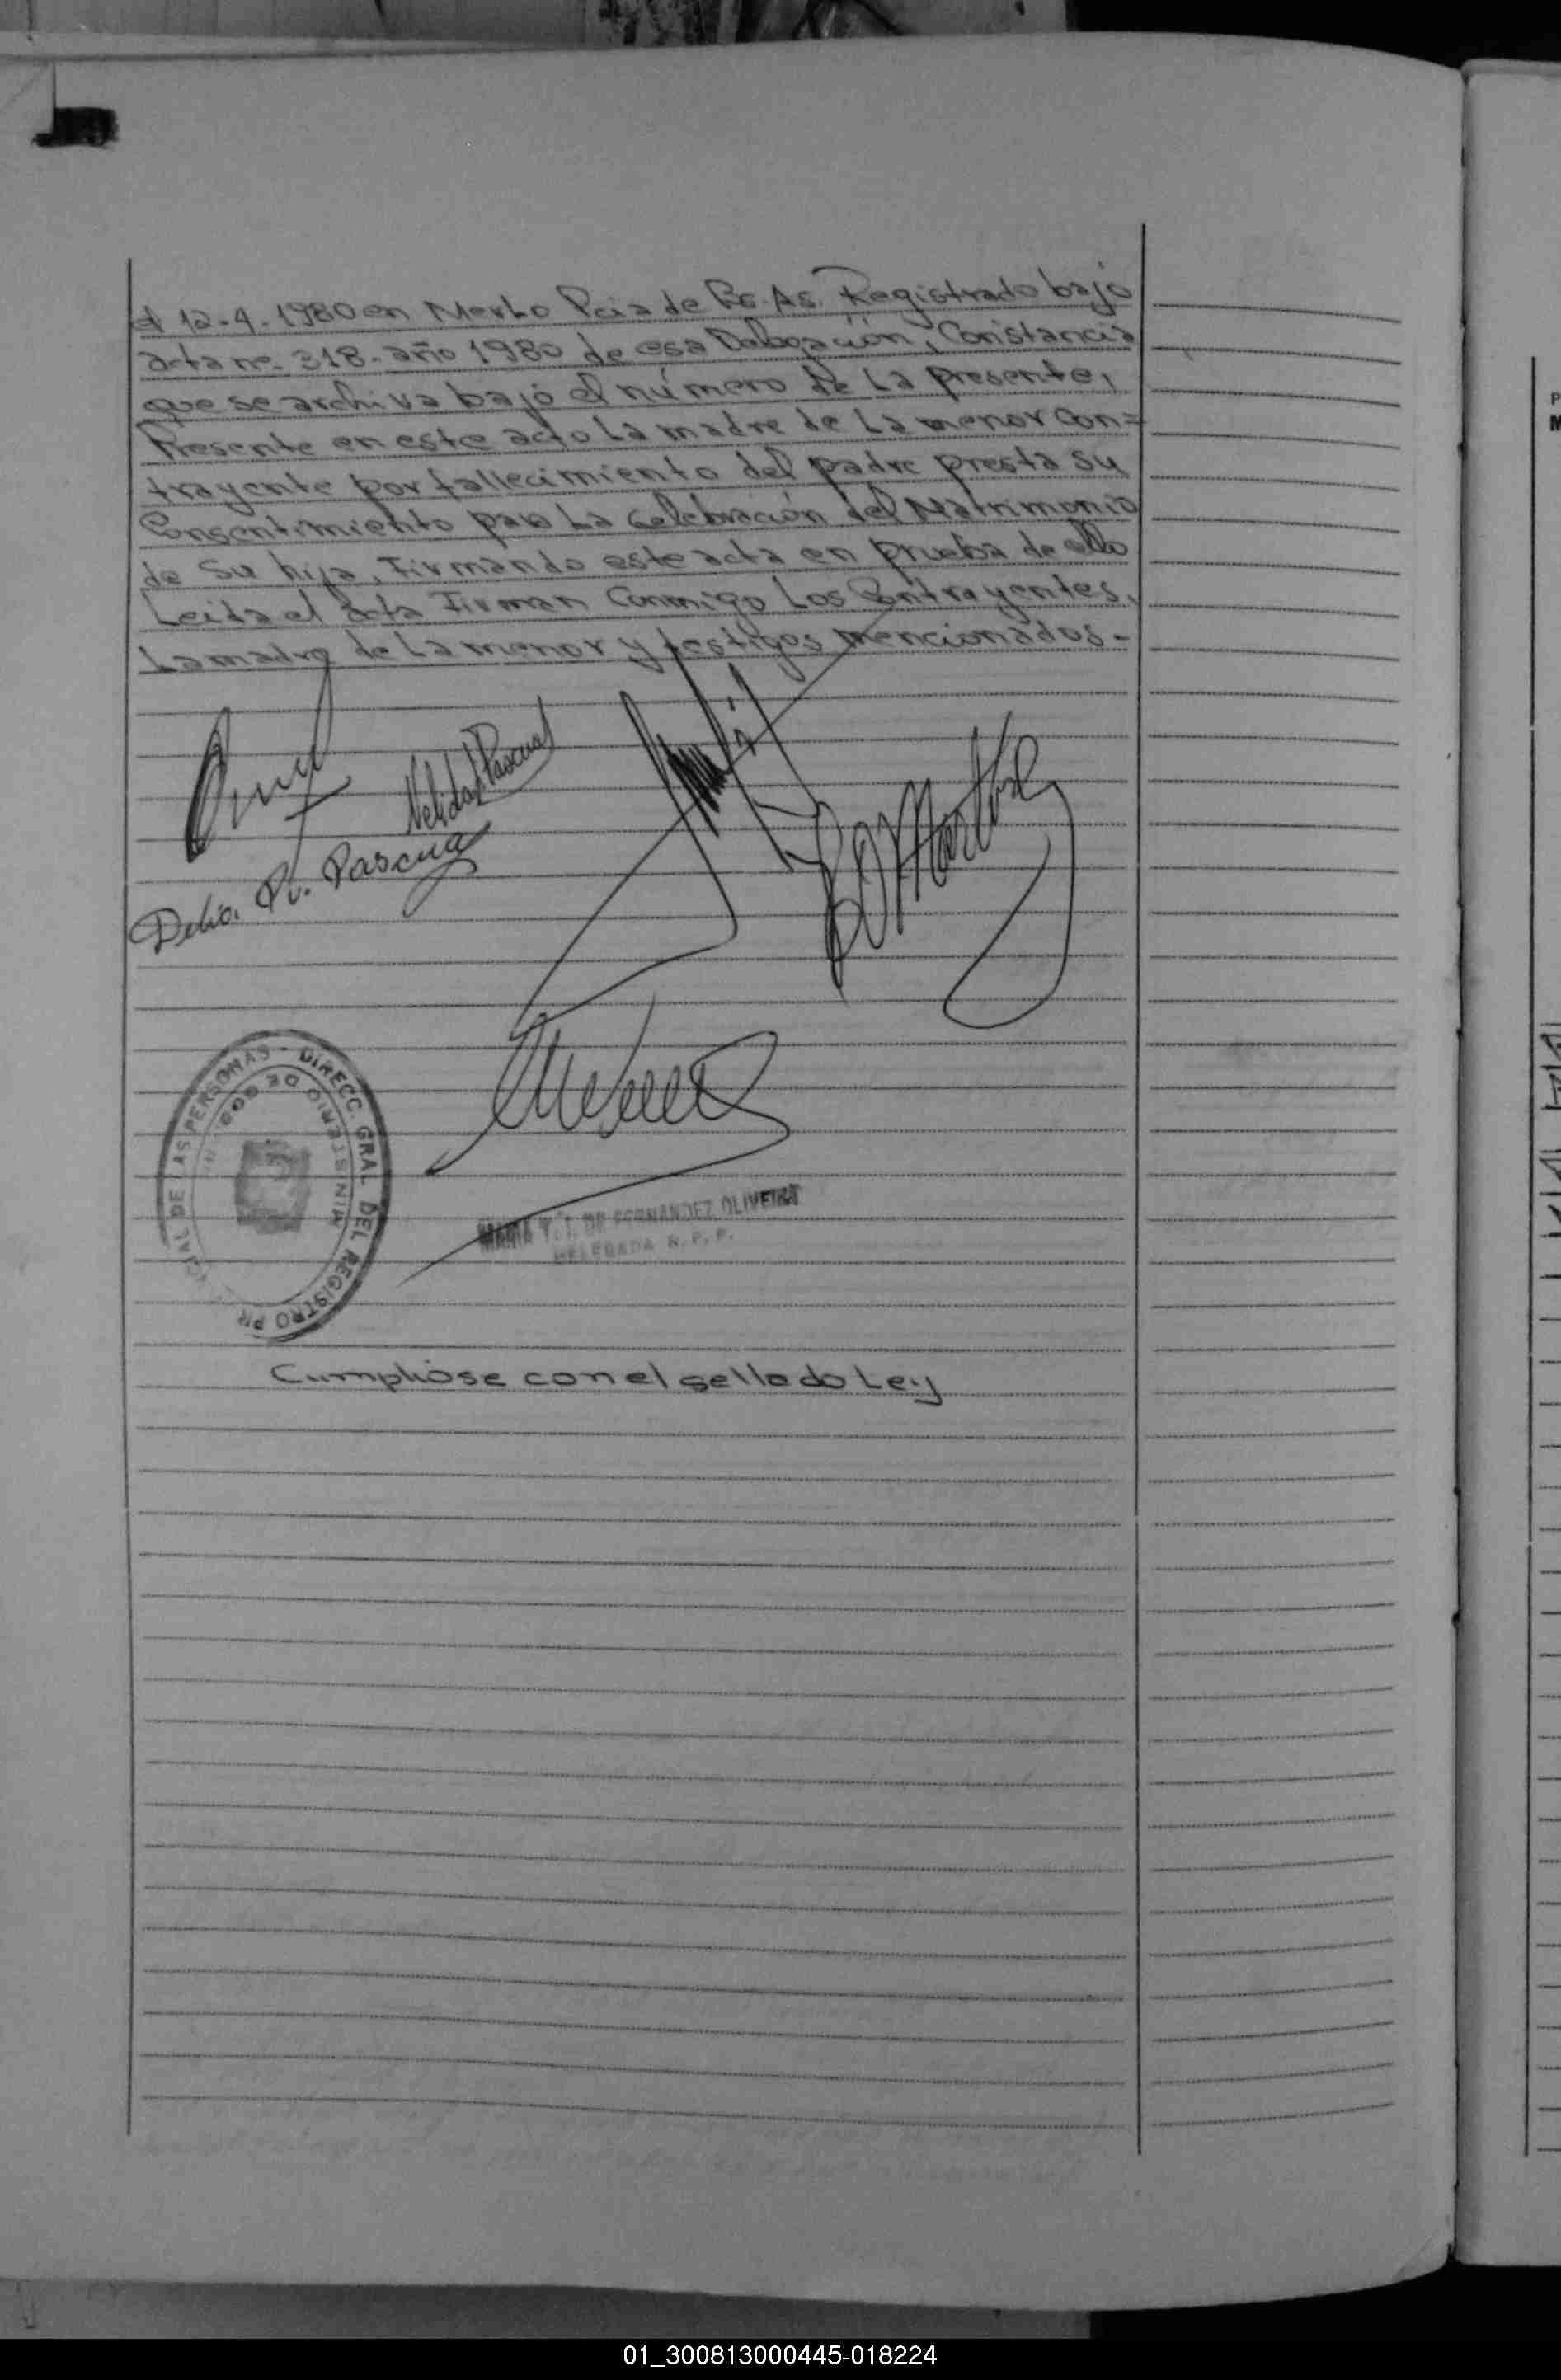 el 12-4-1980 en Merlo Pcia de Bs. As. Registrado bajo
acta nº 318- año 1980 de esa Delegación, Constancia
que se archiva bajo el número de La presente,
Presente en este acto La madre de La menor con=
trayente por fallecimiento del padre presta su
Consentimiento para La Celebración del Matrimonio
de Su hija, Firmando este acta en prueba de ello
Leida el acta Firman Conmigo Los Contrayentes,
La madre de La menor y testigos mencionados-
Nelida Pascual
Delia. Pascua
Martinez
DIRECC. GRAL. DEL REGISTRO DE LAS PERSONAS -
MINISTERIO DE
MARIA DE FERNANDEZ OLIVEIRA
DELEGADA R. P. P.
Cumplióse con el sellado Ley
P
M
01_300813000445-018224